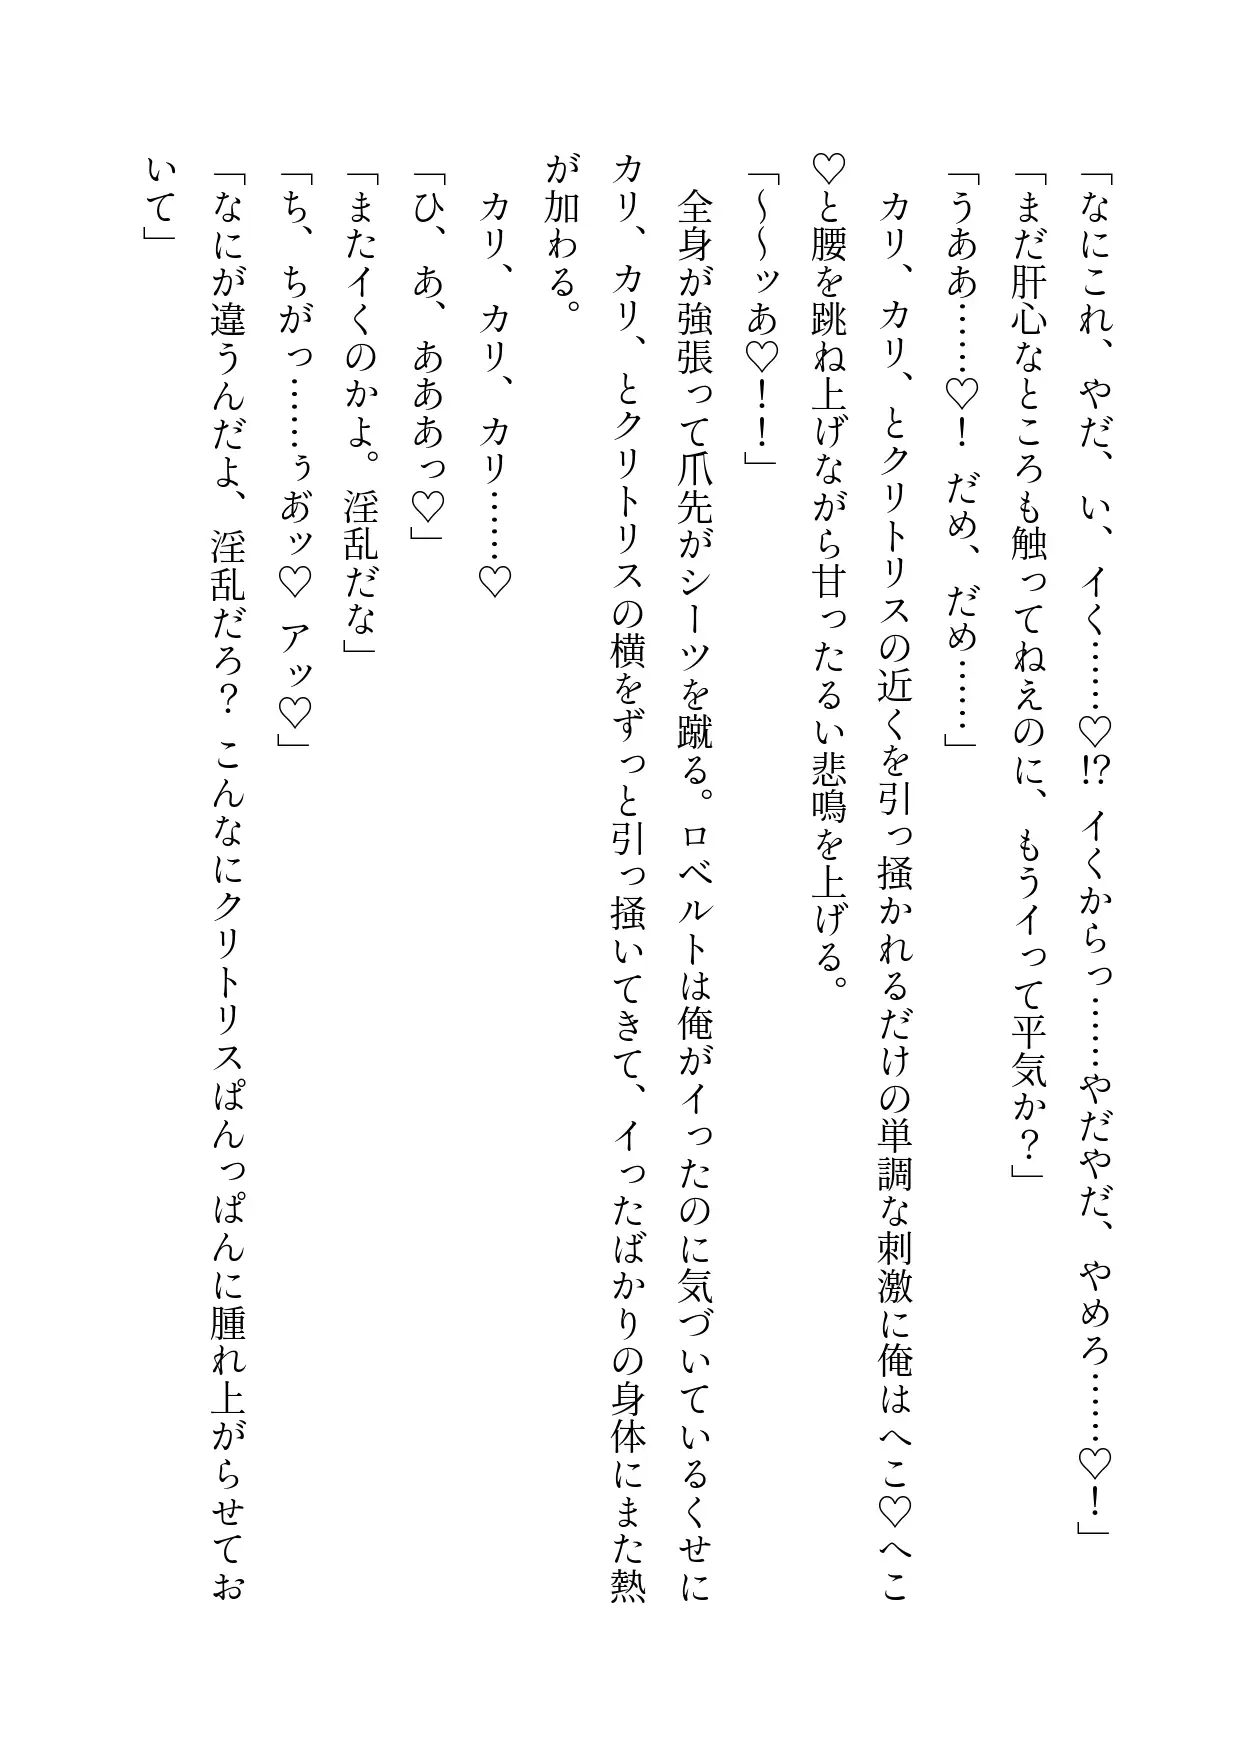 「なにこれ、やだ、い、イく……♡⁉ イくからっ……やだやだ、やめろ……♡！」
「まだ肝心なところも触ってねえのに、もうイって平気か？」
「うああ……♡！ だめ、だめ……」
　カリ、カリ、とクリトリスの近くを引っ掻かれるだけの単調な刺激に俺はへこ♡へこ
♡と腰を跳ね上げながら甘ったるい悲鳴を上げる。
「～～ッあ♡！！」
　全身が強張って爪先がシーツを蹴る。ロベルトは俺がイったのに気づいているくせに
カリ、カリ、とクリトリスの横をずっと引っ掻いてきて、イったばかりの身体にまた熱
が加わる。
　カリ、カリ、カリ……♡
「ひ、あ、あああっ♡」
「またイくのかよ。淫乱だな」
「ち、ちがっ……ぅあ゙ッ♡ アッ♡」
「なにが違うんだよ、淫乱だろ？ こんなにクリトリスぱんっぱんに腫れ上がらせてお
いて」